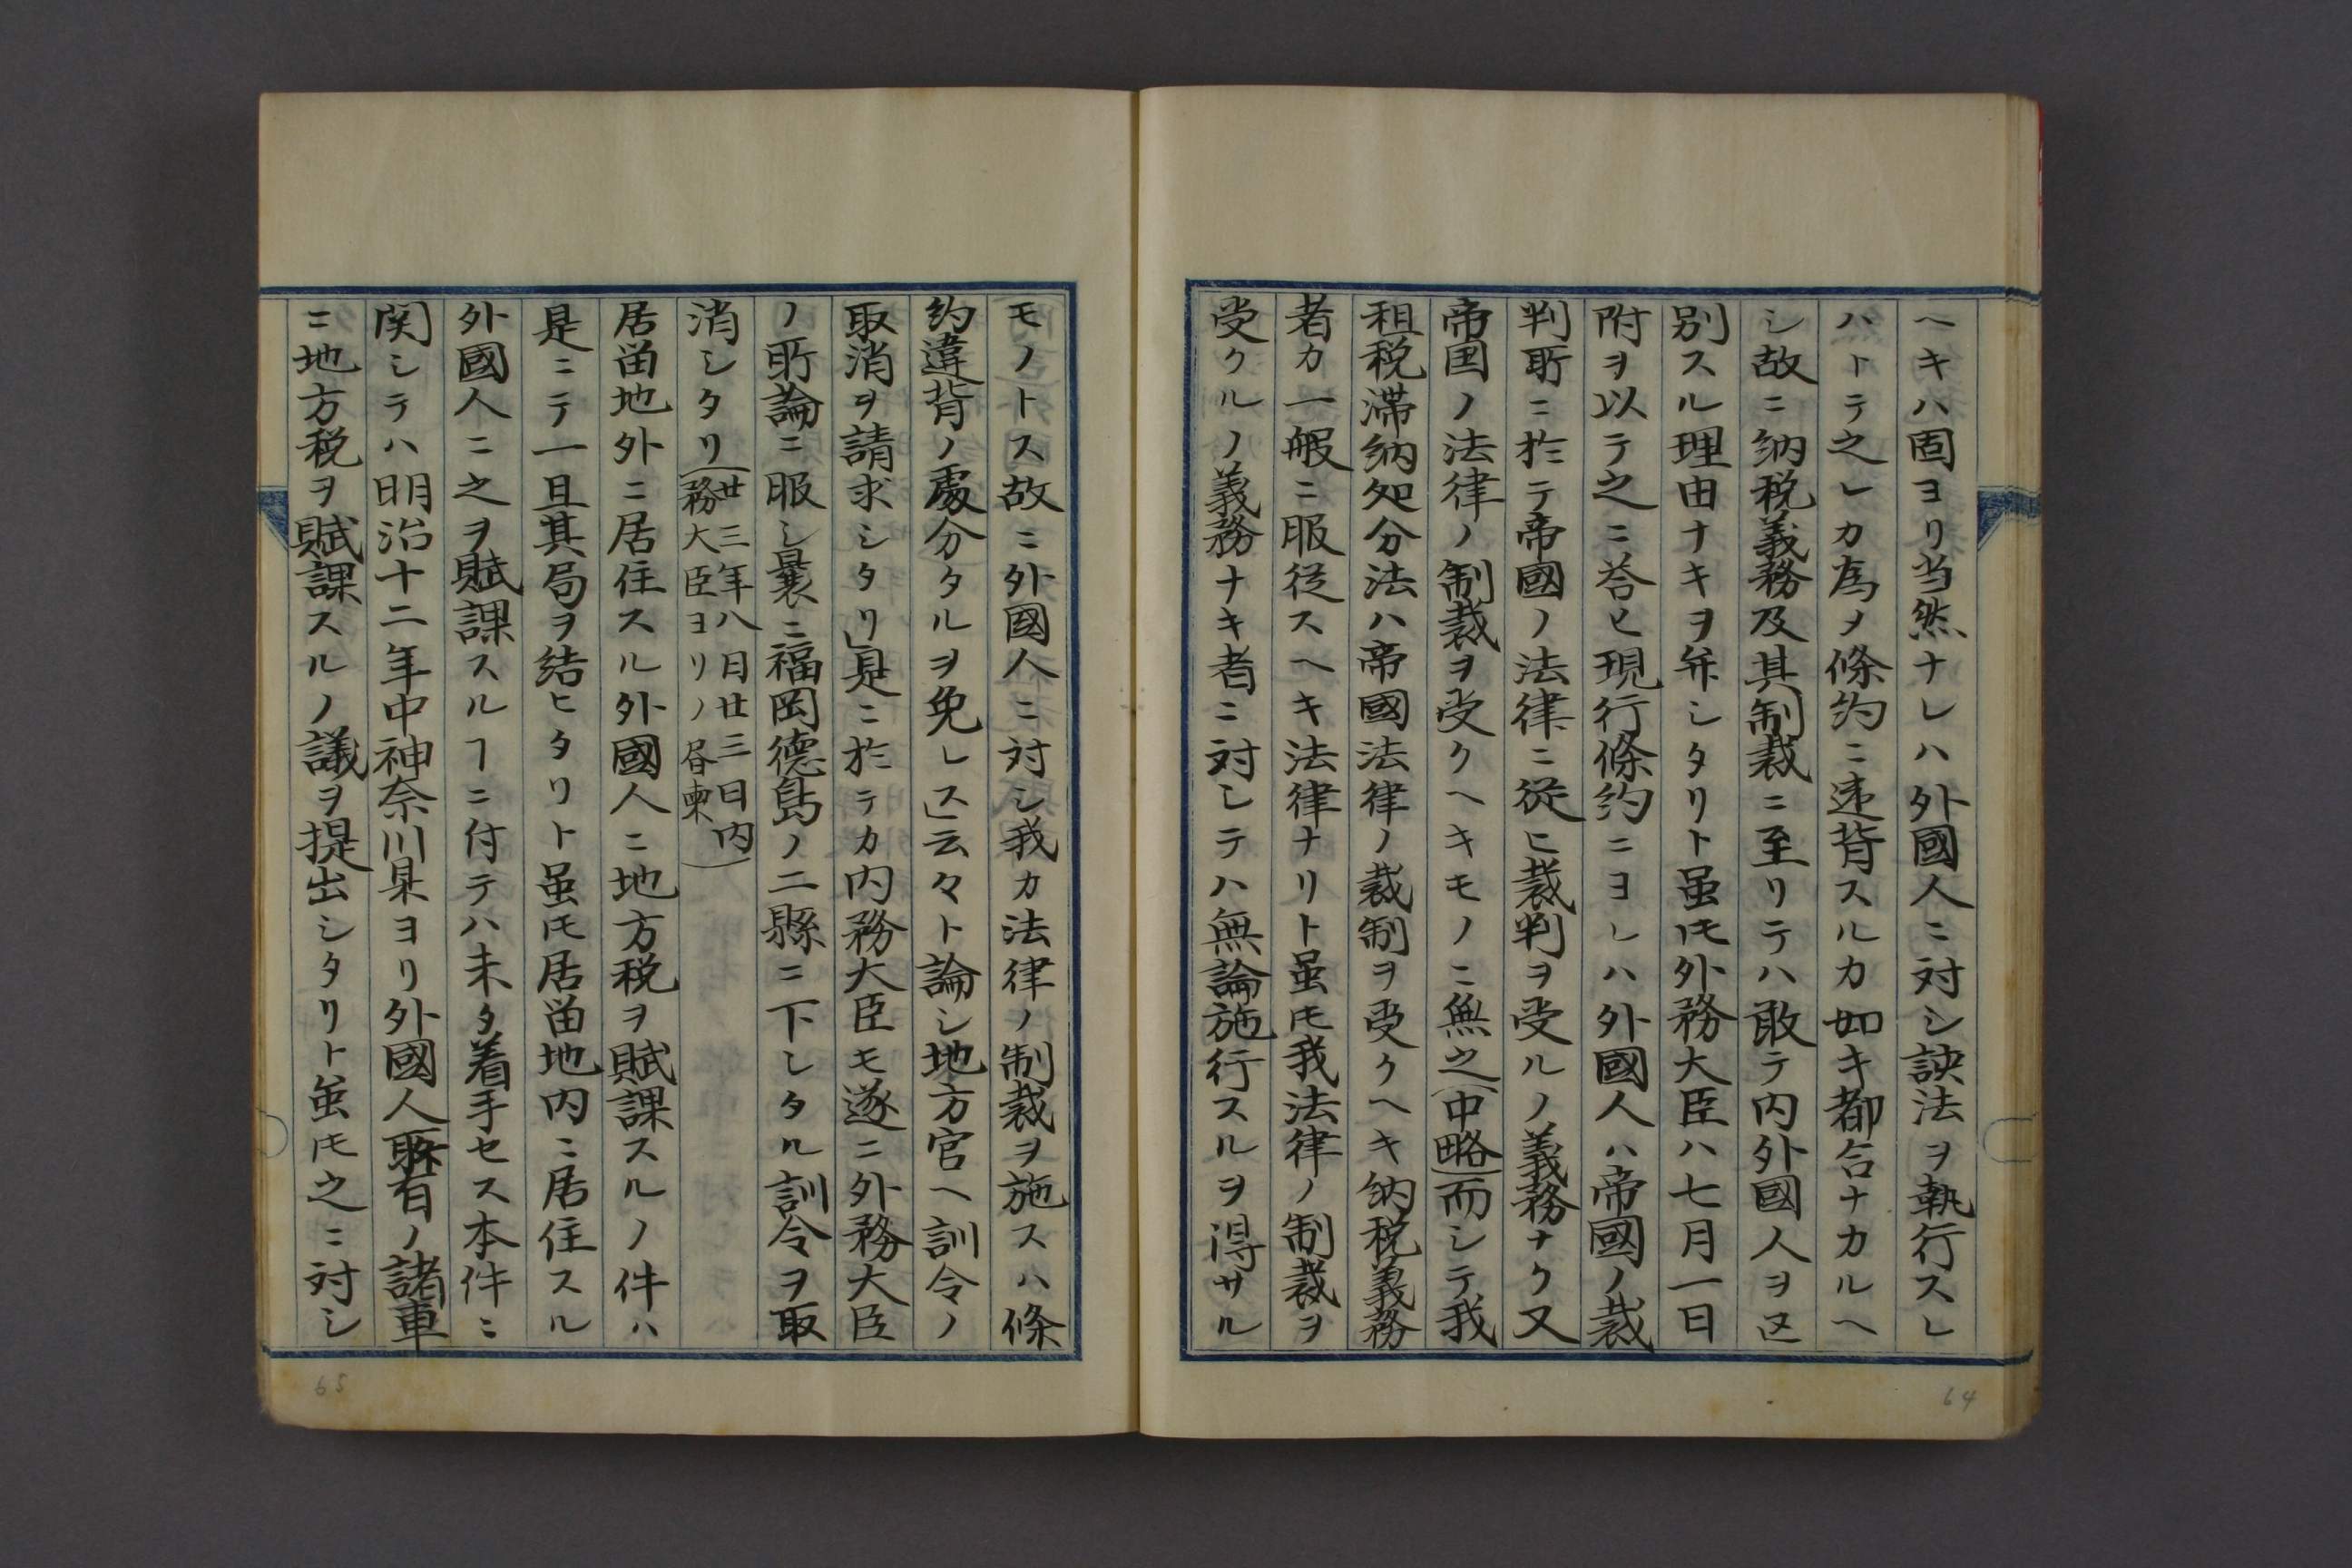 ヘキハ固ヨリ当然ナレハ外國人ニ対シ該法ヲ執行スレ
ハトテ之レカ為メ條約ニ違背スルカ如キ都合ナカルヘ
シ故ニ納税義務及其制裁ニ至リテハ敢テ内外國人ヲ区
別スル理由ナキヲ弁シタリト虽𪜈外務大臣ハ七月一日
附ヲ以テ之ニ答ヒ現行條約ニヨレハ外國人ハ帝國ノ裁
判所ニ於テ帝國ノ法律ニ從ヒ裁判ヲ受ルノ義務ナク又
帝国ノ法律ノ制裁ヲ受クヘキモノニ無之(中略)而シテ我
租税滞納処分法ハ帝國法律ノ裁制ヲ受クヘキ納税義務
者カ一般ニ服従スヘキ法律ナリト虽𪜈我法律ノ制裁ヲ
受クルノ義務ナキ者ニ対シテハ無論施行スルヲ得サル
モノトス故ニ外國人ニ対シ我カ法律ノ制裁ヲ施スハ條
約違背ノ處分タルヲ免レス」云々ト論シ地方官ヘ訓令ノ
取消ヲ請求シタリ」是ニ於テカ内務大臣モ遂ニ外務大臣
ノ所論ニ服シ曩ニ福岡德島ノ二縣ニ下シタル訓令ヲ取
消シタリ(廿三年八月廿三日内
務大臣ヨリノ回柬)
居畄地外ニ居住スル外國人ニ地方税ヲ賦課スルノ件ハ
是ニテ一旦其局ヲ結ヒタリト虽𪜈居畄地内ニ居住スル
外國人ニ之ヲ賦課スルヿニ付テハ未タ着手セス本件ニ
関シテハ明治十二年中神奈川県ヨリ外國人所有ノ諸車
ニ地方税ヲ賦課スルノ議ヲ提出シタリト虽𪜈之ニ対シ
65
64